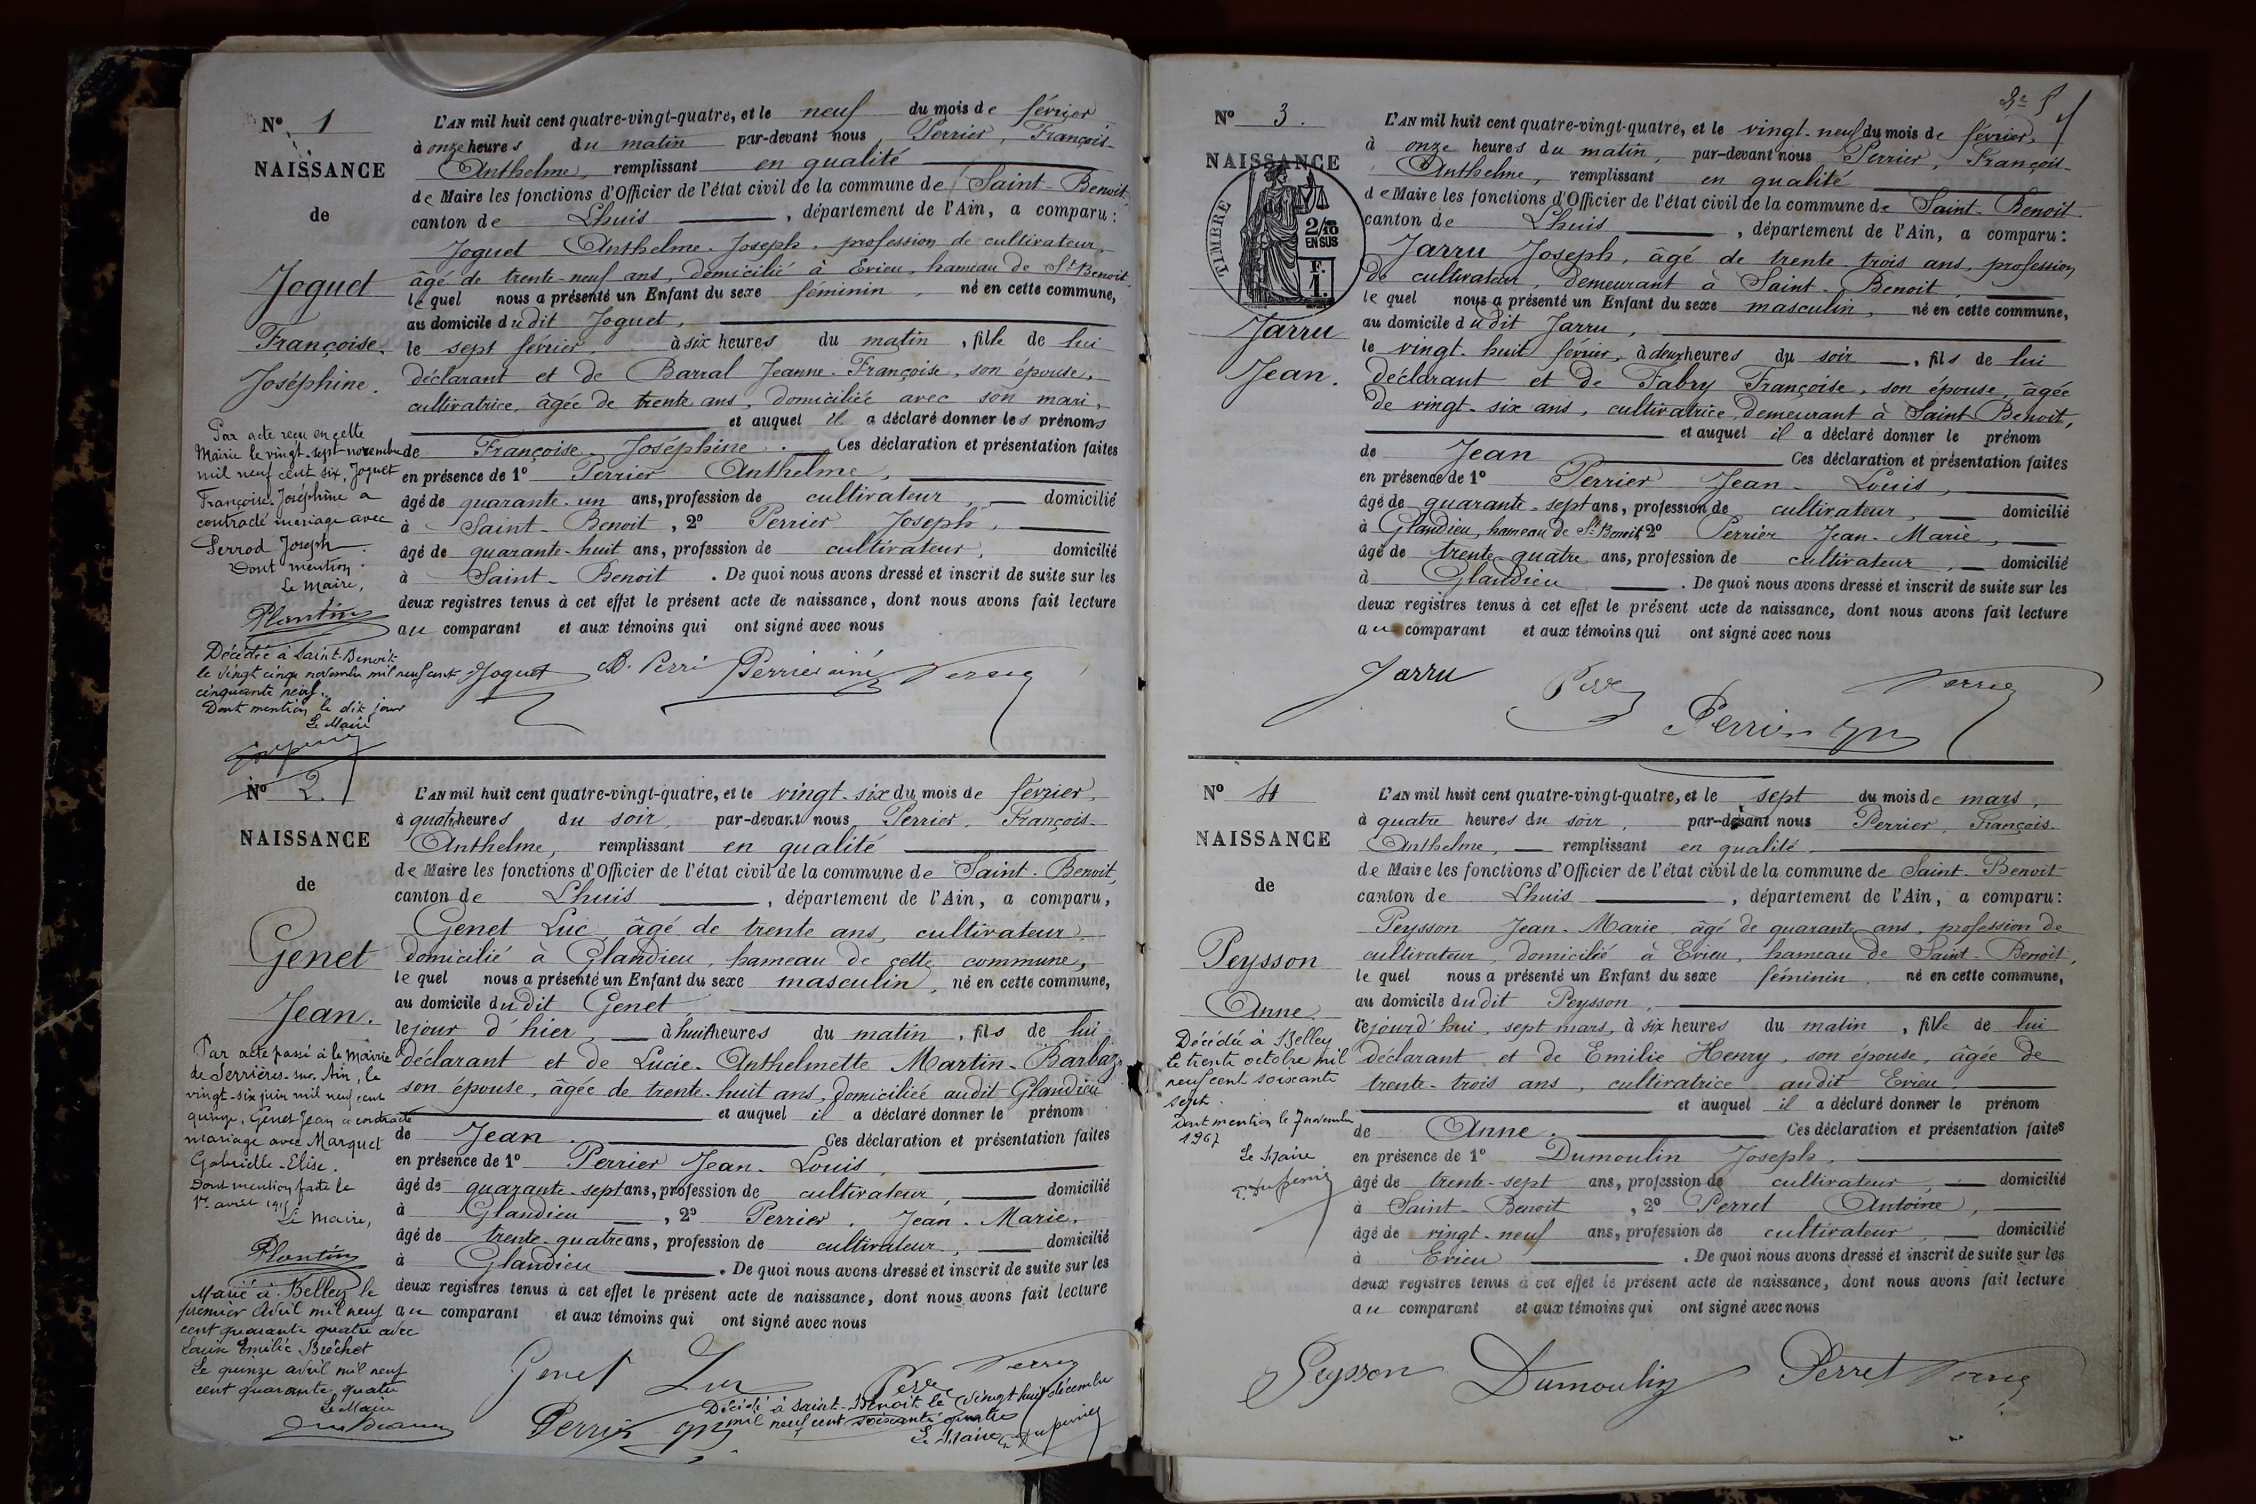 Nº 1
NAISSANCE
de
Joguet
Françoise.
Joséphine.
Par acte reçu en cette
Mairie le vingt-sept novembre
mil neuf cent six, Joguet
Françoise Joséphine a
contracté mariage avec
Perrod Joseph.
Dont mention.
Le Maire,
Plantin
Décédée à Saint-Benoit
le vingt cinq novembre mil neuf cent
cinquante neuf.
Dont mention le dit jour
Le Maire
L'AN mil huit cent quatre-vingt-quatre, et le neuf du mois de février
à onze heures du matin par-devant nous Perrier, François-
Anthelme, remplissant en qualité
de Maire les fonctions d'Officier de l'état civil de la commune de Saint-Benoit,
canton de Lhuis, département de l'Ain, a comparu:
Joguet Anthelme-Joseph, profession de cultivateur,
âgé de trente-neuf ans, domicilié à Evieu, hameau de St Benoit
le quel nous a présenté un Enfant du sexe féminin, né en cette commune,
au domicile dudit Joguet,
le sept février, à six heures du matin, fille de lui
déclarant et de Barral Jeanne-Françoise, son épouse,
cultivatrice, âgée de trente ans, domiciliée avec son mari,
et auquel il a déclaré donner les prénoms
de Françoise Joséphine. Ces déclaration et présentation faites
en présence de 1º Perrier Anthelme,
âgé de quarante-un ans, profession de cultivateur, domicilié
à Saint-Benoit, 2º Perrier Joseph,
âgé de quarante-huit ans, profession de cultivateur, domicilié
à Saint-Benoit. De quoi nous avons dressé et inscrit de suite sur les
deux registres tenus à cet effet le présent acte de naissance, dont nous avons fait lecture
au comparant et aux témoins qui ont signé avec nous
Joguet A. Perri Perrier ainé Perrier
Nº 2.
NAISSANCE
de
Genet
Jean.
Par acte passé à la Mairie
de Serrières-sur-Ain, le
vingt-six juin mil neuf cent
quinze, Genet Jean a contracté
mariage avec Marquet
Gabrielle-Elise.
Dont mention faite le
Le Maire,
Plantin
Marié à Belley le
premier avril mil neuf
cent quarante quatre avec
Laure Emilie Bréchet
Le quinze avril mil neuf
cent quarante quatre
Le Maire
L'AN mil huit cent quatre-vingt-quatre, et le vingt-six du mois de février,
à quatre heures du soir, par-devant nous Perrier, François-
Anthelme, remplissant en qualité
de Maire les fonctions d'Officier de l'état civil de la commune de Saint-Benoit,
canton de Lhuis, département de l'Ain, a comparu,
Genet Luc, âgé de trente ans, cultivateur,
domicilié à Glandieu, hameau de cette commune,
le quel nous a présenté un Enfant du sexe masculin, né en cette commune,
au domicile dudit Genet
le jour d'hier, à huit heures du matin, fils de lui
déclarant et de Lucie-Anthelmette Martin-Barbaz,
son épouse, âgée de trente-huit ans, domiciliée audit Glandieu
et auquel il a déclaré donner le prénom
de Jean. Ces déclaration et présentation faites
en présence de 1º Perrier Jean-Louis,
âgé de quarante-sept ans, profession de cultivateur, domicilié
à Glandieu, 2º Perrier, Jean-Marie,
âgé de trente-quatre ans, profession de cultivateur, domicilié
à Glandieu. De quoi nous avons dressé et inscrit de suite sur les
deux registres tenus à cet effet le présent acte de naissance, dont nous avons fait lecture
au comparant et aux témoins qui ont signé avec nous
Genet Luc Perrier
Décédé à Saint-Benoit le vingt huit décembre
mil neuf cent soixante quatre
Le Maire
Nº 3.
NAISSANCE
TIMBRE
2/10
EN SUS
F.
1.
Jarru
Jean.
L'AN mil huit cent quatre-vingt-quatre, et le vingt-neuf du mois de février,
à onze heures du matin, par-devant nous Perrier, François-
Anthelme, remplissant en qualité
de Maire les fonctions d'Officier de l'état civil de la commune de Saint-Benoit
canton de Lhuis, département de l'Ain, a comparu:
Jarru Joseph, âgé de trente trois ans, profession
de cultivateur, demeurant à Saint-Benoit,
le quel nous a présenté un Enfant du sexe masculin, né en cette commune,
au domicile dudit Jarru,
le vingt-huit février, à deux heures du soir, fils de lui
déclarant et de Fabry Françoise, son épouse, âgée
de vingt-six ans, cultivatrice, demeurant à Saint-Benoit,
et auquel il a déclaré donner le prénom
de Jean Ces déclaration et présentation faites
en présence de 1º Perrier Jean-Louis,
âgé de quarante-sept ans, profession de cultivateur, domicilié
à Glandieu, hameau de St Benoit 2º Perrier Jean-Marie,
âgé de trente-quatre ans, profession de cultivateur, domicilié
à Glandieu. De quoi nous avons dressé et inscrit de suite sur les
deux registres tenus à cet effet le présent acte de naissance, dont nous avons fait lecture
au comparant et aux témoins qui ont signé avec nous
Jarru Perrier
Nº 4
NAISSANCE
de
Peysson
Anne.
Décédée à Belley
le trente octobre mil
neuf cent soixante
sept.
Dont mention le 7 novembre
1967
Le Maire
L'AN mil huit cent quatre-vingt-quatre, et le sept du mois de mars,
à quatre heures du soir, par-devant nous Perrier, François-
Anthelme, remplissant en qualité
de Maire les fonctions d'Officier de l'état civil de la commune de Saint-Benoit
canton de Lhuis, département de l'Ain, a comparu:
Peysson Jean-Marie, âgé de quarante ans, profession de
cultivateur, domicilié à Evieu, hameau de Saint-Benoit,
le quel nous a présenté un Enfant du sexe féminin, né en cette commune,
au domicile dudit Peysson,
le jourd'hui, sept mars, à six heures du matin, fille de lui
déclarant et de Emilie Henry, son épouse, âgée de
trente-trois ans, cultivatrice audit Evieu,
et auquel il a déclaré donner le prénom
de Anne. Ces déclaration et présentation faites
en présence de 1º Dumoulin Joseph,
âgé de trente-sept ans, profession de cultivateur, domicilié
à Saint-Benoit, 2º Perret Antoine,
âgé de vingt-neuf ans, profession de cultivateur, domicilié
à Evieu. De quoi nous avons dressé et inscrit de suite sur les
deux registres tenus à cet effet le présent acte de naissance, dont nous avons fait lecture
au comparant et aux témoins qui ont signé avec nous
Peysson Dumoulin Perret Perrier